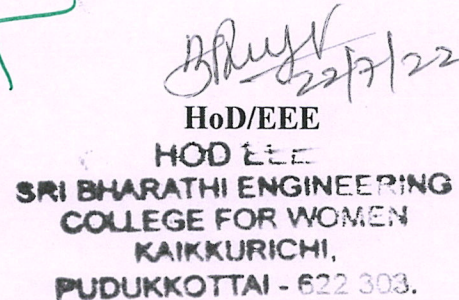 22/7/22
HoD/EEE
HOD EEE
SRI BHARATHI ENGINEERING
COLLEGE FOR WOMEN
KAIKKURICHI,
PUDUKKOTTAI - 622 303.